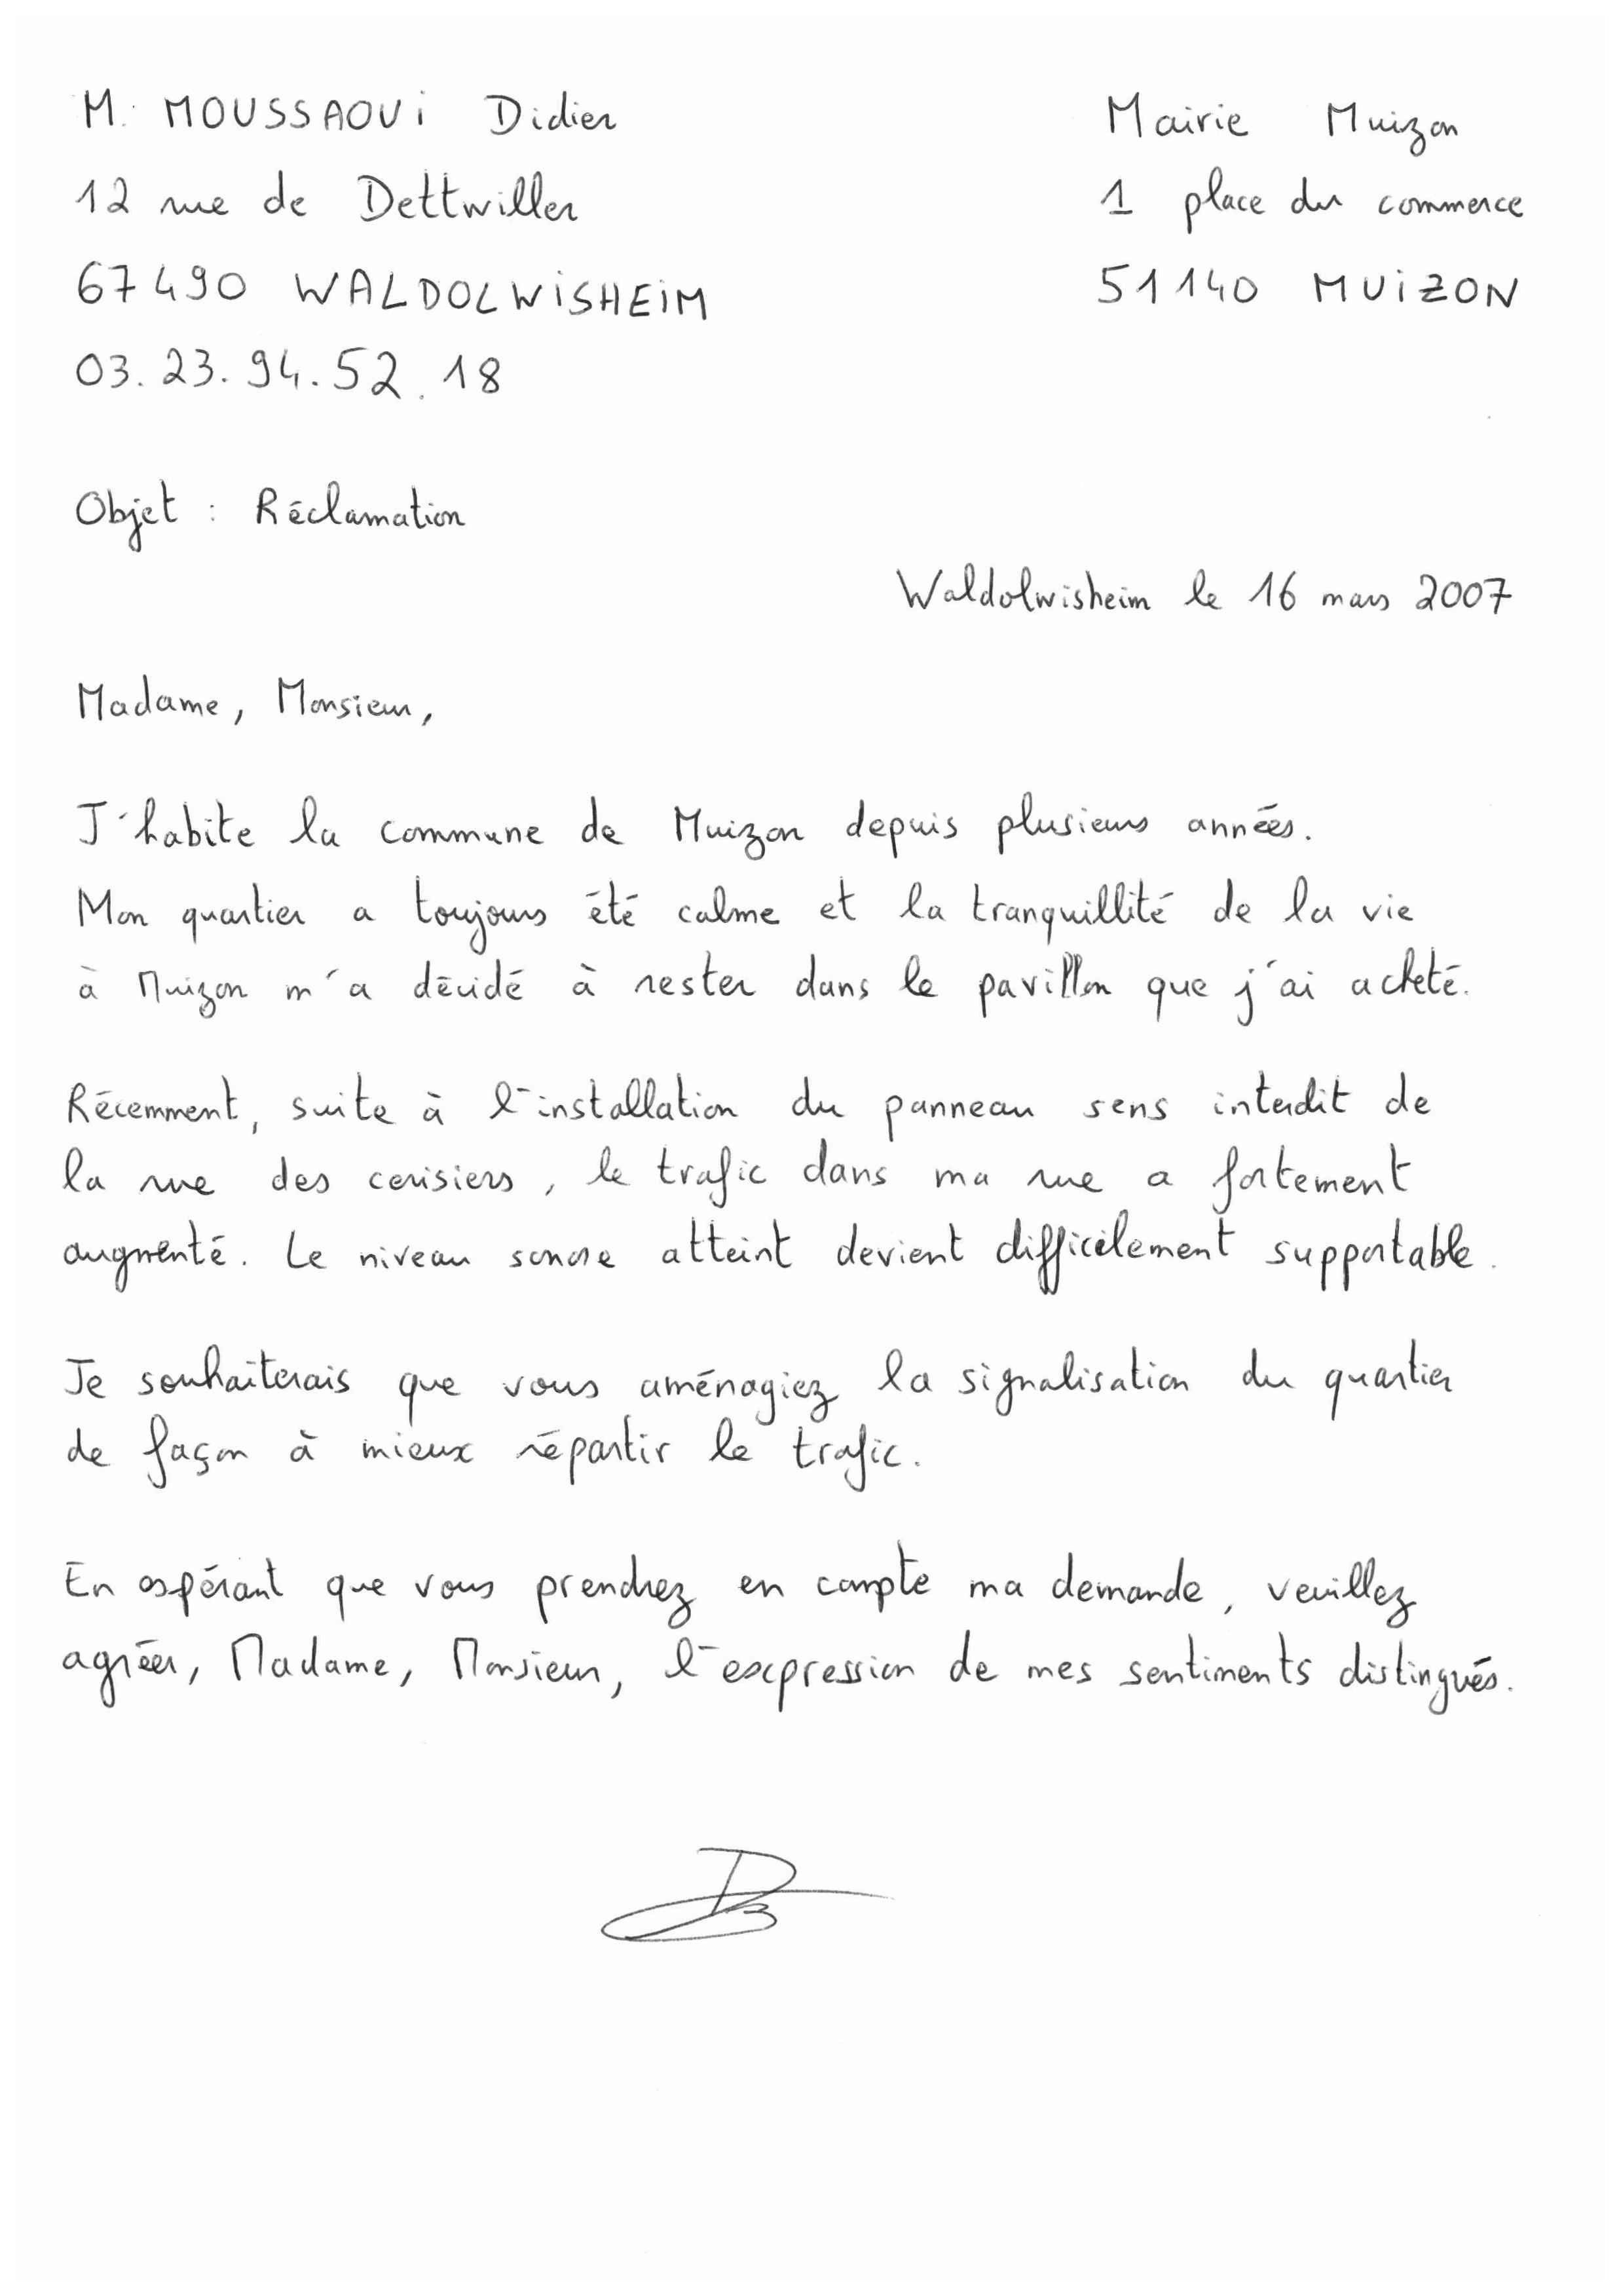 M. MOUSSAOUi Didier
12 rue de Dettwiller
67490 WALDOLWiSHEiM
03.23.94.52.18
Mairie Muizon
1 place du commerce
51140 MUiZON
Objet : Réclamation
Waldolwisheim le 16 mars 2007
Madame, Monsieur,
J'habite la commune de Muizon depuis plusieurs années.
Mon quartier a toujours été calme et la tranquillité de la vie
à Muizon m'a décidé à rester dans le pavillon que j'ai acheté.
Récemment, suite à l'installation du panneau sens interdit de
la rue des cerisiers, le trafic dans ma rue a fortement
augmenté. Le niveau sonore atteint devient difficilement supportable.
Je souhaiterais que vous aménagiez la signalisation du quartier
de façon à mieux répartir le trafic.
En espérant que vous prendrez en compte ma demande, veuillez
agréer, Madame, Monsieur, l'expression de mes sentiments distingués.